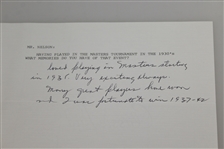 MR. NELSON:
HAVING PLAYED IN THE MASTERS TOURNAMENT IN THE 1930's
WHAT MEMORIES DO YOU HAVE OF THAT EVENT?
loved playing in Masters starting
in 193 . Very exciting always.
Many great players have won
and I was fortunate to win 1937-42